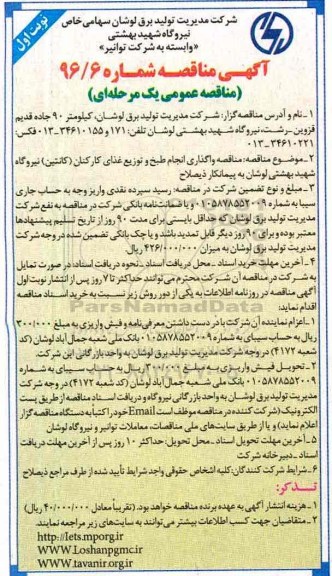 نوبت اول
شرکت مدیریت تولید برق لوشان سهامی خاص
نیروگاه شهید بهشتی
«وابسته به شرکت توانیر»
آگهی مناقصه شماره ۹۶/۶
(مناقصه عمومی یک مرحله‌ای)
۱ـ نام و آدرس مناقصه‌گزار: شرکت مدیریت تولید برق لوشان، کیلومتر ۹۰ جاده قدیم
قزوین ـ رشت، نیروگاه شهید بهشتی لوشان تلفن: ۱۷۱ و ۳۴۶۱۰۱۵۵-۰۱۳ فکس:
۳۴۶۱۰۲۲۱-۰۱۳
۲ـ موضوع مناقصه: مناقصه واگذاری انجام طبخ و توزیع غذای کارکنان (کانتین) نیروگاه
شهید بهشتی لوشان به پیمانکار ذیصلاح
۳ـ مبلغ و نوع تضمین شرکت در مناقصه: رسید سپرده نقدی واریز وجه به حساب جاری
سیبا به شماره ۰۱۰۵۸۷۸۵۵۲۰۰۹ و یا ضمانتنامه بانکی شرکت در مناقصه به نفع شرکت
مدیریت تولید برق لوشان که حداقل بایستی برای مدت ۹۰ روز از تاریخ تسلیم پیشنهادها
معتبر بوده و برای ۹۰ روز دیگر قابل تمدید باشد و یا چک بانکی تضمین شده در وجه شرکت
مدیریت تولید برق لوشان به میزان ۴۲۶/۰۰۰/۰۰۰ ریال.
۴ـ آخرین مهلت خرید اسناد ـ محل دریافت اسناد ـ نحوه دریافت اسناد: در صورت تمایل
به شرکت در مناقصه آن شرکت محترم می‌توانند حداکثر تا ۷ روز پس از انتشار نوبت اول
آگهی مناقصه در روزنامه اطلاعات به یکی از دو روش زیر نسبت به خرید اسناد مناقصه
اقدام نمایند:
۱ـ اعزام نماینده آن شرکت با در دست داشتن معرفی‌نامه و فیش واریزی به مبلغ ۳۰۰/۰۰۰
ریال به حساب سیبای به شماره ۰۱۰۵۸۷۸۵۵۲۰۰۹ بانک ملی شعبه جمال‌آباد لوشان (کد
شعبه ۴۱۷۲) در وجه شرکت مدیریت تولید برق لوشان به واحد بازرگانی این شرکت.
۲ـ تحویل فیش واریزی به مبلغ ریال به حساب سیبای به شماره
۰۱۰۵۸۷۸۵۵۲۰۰۹ بانک ملی شعبه جمال‌آباد لوشان (کد شعبه ۴۱۷۲) در وجه شرکت
مدیریت تولید برق لوشان به واحد بازرگانی نیروگاه و دریافت اسناد مناقصه از طریق پست
الکترونیک (شرکت کننده در مناقصه موظف است Email خود را کتباً به دستگاه مناقصه گزار
اعلام نماید) و یا از طریق سایت‌های ملی مناقصات، معاملات توانیر و نیروگاه لوشان
۵ـ آخرین مهلت تحویل اسناد ـ محل تحویل: حداکثر ۱۰ روز پس از آخرین مهلت دریافت
اسناد ـ دبیرخانه شرکت
۶ـ شرایط شرکت کنندگان: کلیه اشخاص حقوقی واجد شرایط تأیید شده از طرف مراجع ذیصلاح
تذکر:
۱ـ هزینه انتشار آگهی به عهده برنده مناقصه خواهد بود. (تقریباً معادل ۴۰/۰۰۰/۰۰۰ ریال)
۲ـ متقاضیان جهت کسب اطلاعات بیشتر می‌توانند به سایت‌های زیر مراجعه نمایند.
http://Iets.mporg.ir
WWW.Loshanpgmc.ir
WWW.tavanir.org.ir
ParsNamadData